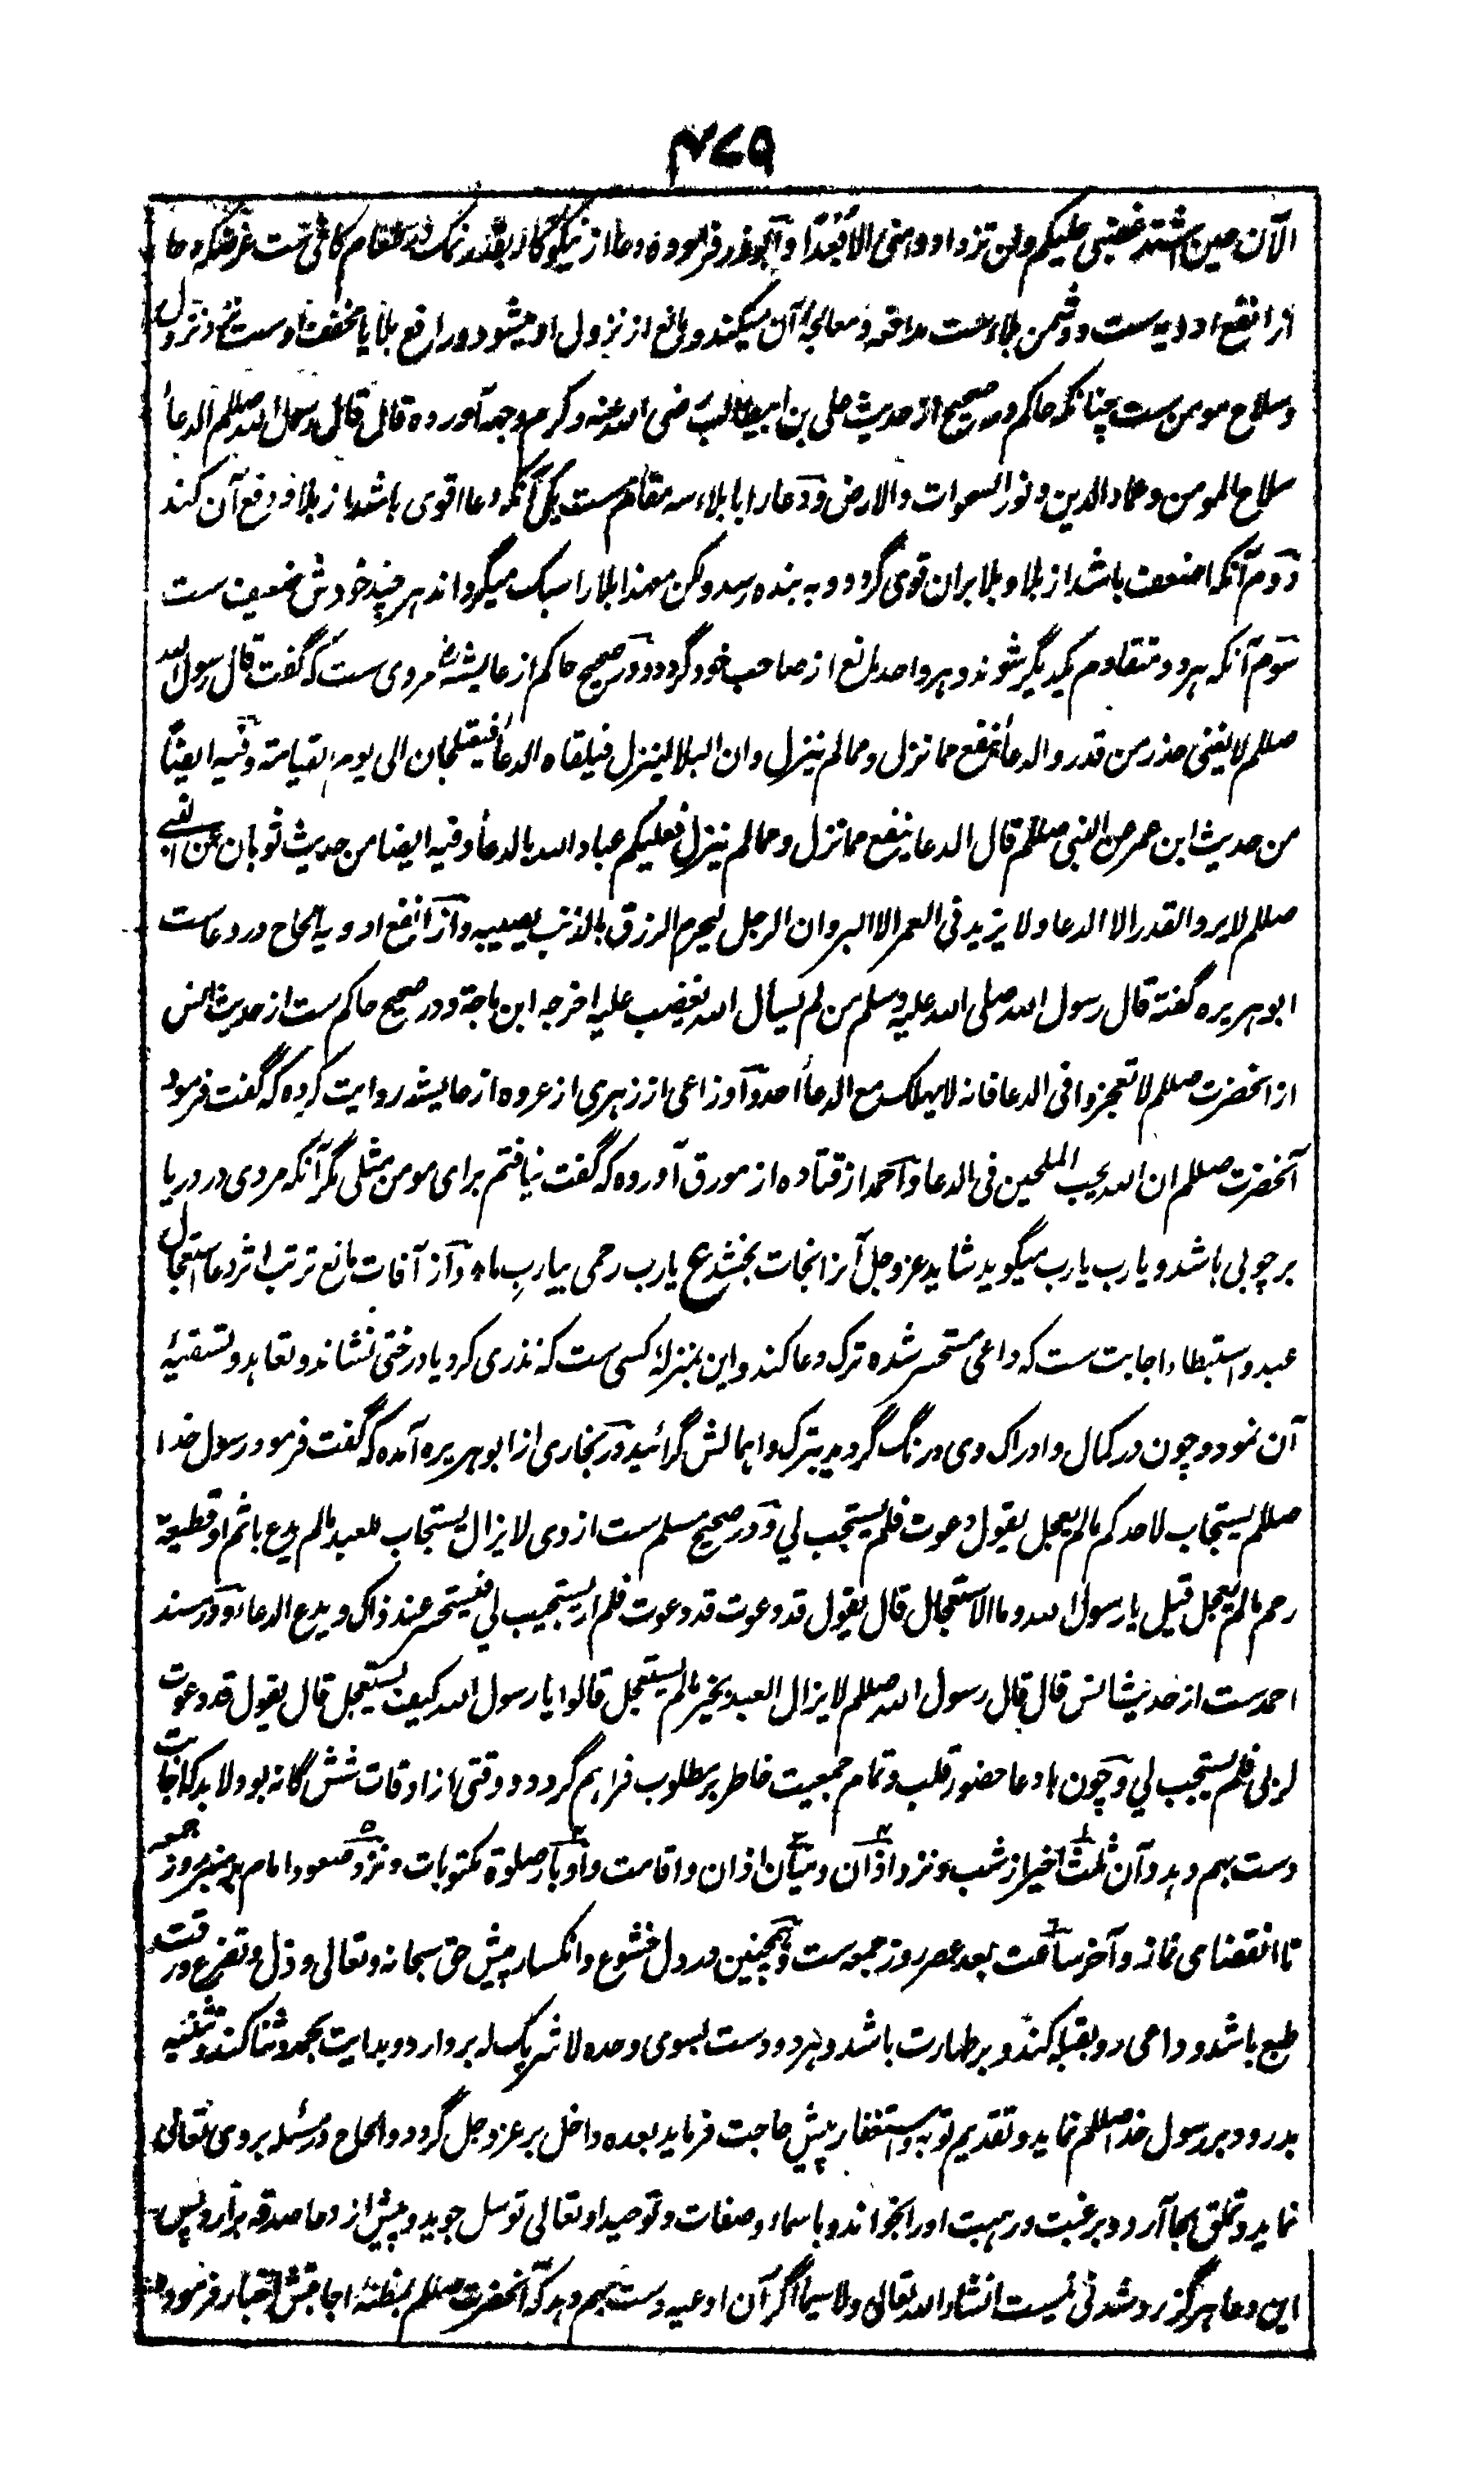 ۴۷۹
الآن حین اشتد غضبی علیکم ولن تزدادوا منی الا بُعدًا وابوذر فرموده دعا از نیکوکار بقدر نمک در طعام کافی ست غرضکه دعا
از انفع ادویه ست ودشمن بلاءست مدافعه ومعالجهٔ آن میکند ومانع از نزول او میشود ورافع بلا یا مخفف اوست بعد نزول
وسلاح مومن ست چنانکه حاکم در صحیح از حدیث علی بن ابیطالب رضی الله عنه وکرم وجهه آورده قال قال رسول الله صللم الدعاء
سلاح المومن وعماد الدین ونور السموات والارض ودعا را با بلاء سه مقام ست یکی آنکه دعا اقوی باشد از بلا ودفع آن کند
دوم آنکه اضعف باشد از بلا وبلا بران قوی گردد وبه بنده رسد ولکن معهذا بلا را سبک میگرداند هر چند خودش ضعیف ست
سوم آنکه هر دو متقاوم یکدیگر شوند وهر واحد مانع از صاحب خود گردد ودر صحیح حاکم از عایشه رض مروی ست که گفت قال رسول الله
صللم لا یغنی حذر من قدر والدعاء ینفع مما نزل ومما لم ینزل وان البلا لینزل فیلقاه الدعاء فیعتلجان الی یوم القیامة وفیه ایضًا
من حدیث ابن عمر عن النبی صللم قال الدعا ینفع مما نزل ومما لم ینزل فعلیکم عباد الله بالدعاء وفیه ایضا من حدیث ثوبان عن النبی
صللم لا یرد القدر الا الدعا ولا یزید فی العمر الا البر وان الرجل لیحرم الرزق بالذنب یصیبه واز انفع ادویه الحاح در دعاست
ابو هریره گفته قال رسول الله صلی الله علیه وسلم من لم یسأل الله یغضب علیه اخرجه ابن ماجة ودر صحیح حاکم ست از حدیث انس
از آنحضرت صللم لا تعجزوا فی الدعا فانه لا یهلک مع الدعاء احد واوزاعی از زهری از عروه از عایشه روایت کرده که گفت فرمود
آنحضرت صللم ان الله یحب الملحین فی الدعا واحمد از قتاده از مورق آورده که گفت نیافتم برای مومن مثلی مگر آنکه مردی در دریا
بر چوبی باشد ویا رب یا رب میگوید شاید عز وجل آنرا نجات بخشد ع یارب رحمی بیارب ما ÷ واز آفات مانع ترتب اثر دعا استعجال
عبد واستبطاء اجابت ست که داعی مستحسر شده ترک دعا کند واین بمنزلهٔ کسی ست که نذری کرد یا درختی نشاند وتعاهد وتسقیهٔ
آن نمود وچون در کمال وادراک وی درنگ گردید بترک واهمالش گرائید ودر بخاری از ابو هریره آمده که گفت فرمود رسول خدا
صللم یستجاب لاحدکم ما لم یعجل یقول دعوت فلم یستجب لی ودر صحیح مسلم ست از وی لا یزال یستجاب للعبد ما لم یدع باثم او قطیعة
رحم ما لم یعجل قیل یا رسول الله وما الاستعجال قال یقول قد دعوت قد دعوت فلم ار یستجیب لی فیستحسر عند ذاک ویدع الدعاء ودر مسند
احمد ست از حدیث انس قال قال رسول الله صللم لا یزال العبد بخیر ما لم یستعجل قالوا یا رسول الله کیف یستعجل قال یقول قد دعوت
لربی فلم یستجب لی وچون با دعا حضور قلب وتمام جمعیت خاطر بر مطلوب فراهم گردد ووقتی از اوقات شش گانه بود لابد که اجابت
دست بهم دهد وآن ثلث اخیر از شب ونزد اذان ومیان اذان واقامت وادبار صلوة مکتوبات ونزد صعود امام بر منبر روز جمعه
تا انقضای نماز وآخر ساعت بعد عصر روز جمعه ست وهمچنین در دل خشوع وانکسار پیش حق سبحانه وتعالی وذل وتضرع ورقت
طبع باشد وداعی رو بقبله کند وبر طهارت باشد وهر دو دست بسوی وحده لا شریک له بردارد وبدایت بحمد وثنا کند وتثنیه
بدرود بر رسول خدا صللم نماید وتقدیم توبه واستغفار پیش حاجت فرماید بعده داخل بر عز وجل گردد والحاح در مسئله بر وی تعالی
نماید وتملق بجا آرد وبرغبت ورهبت او را بخواند وباسماء وصفات وتوحید او تعالی توسل جوید وپیش از دعا صدقه برآرد پس
این دعا هرگز رد شدنی نیست انشاء الله تعالی ولا سیما اگر آن ادعیه دست بهم دهد که آنحضرت صللم بمظنهٔ اجابتش اخبار فرموده